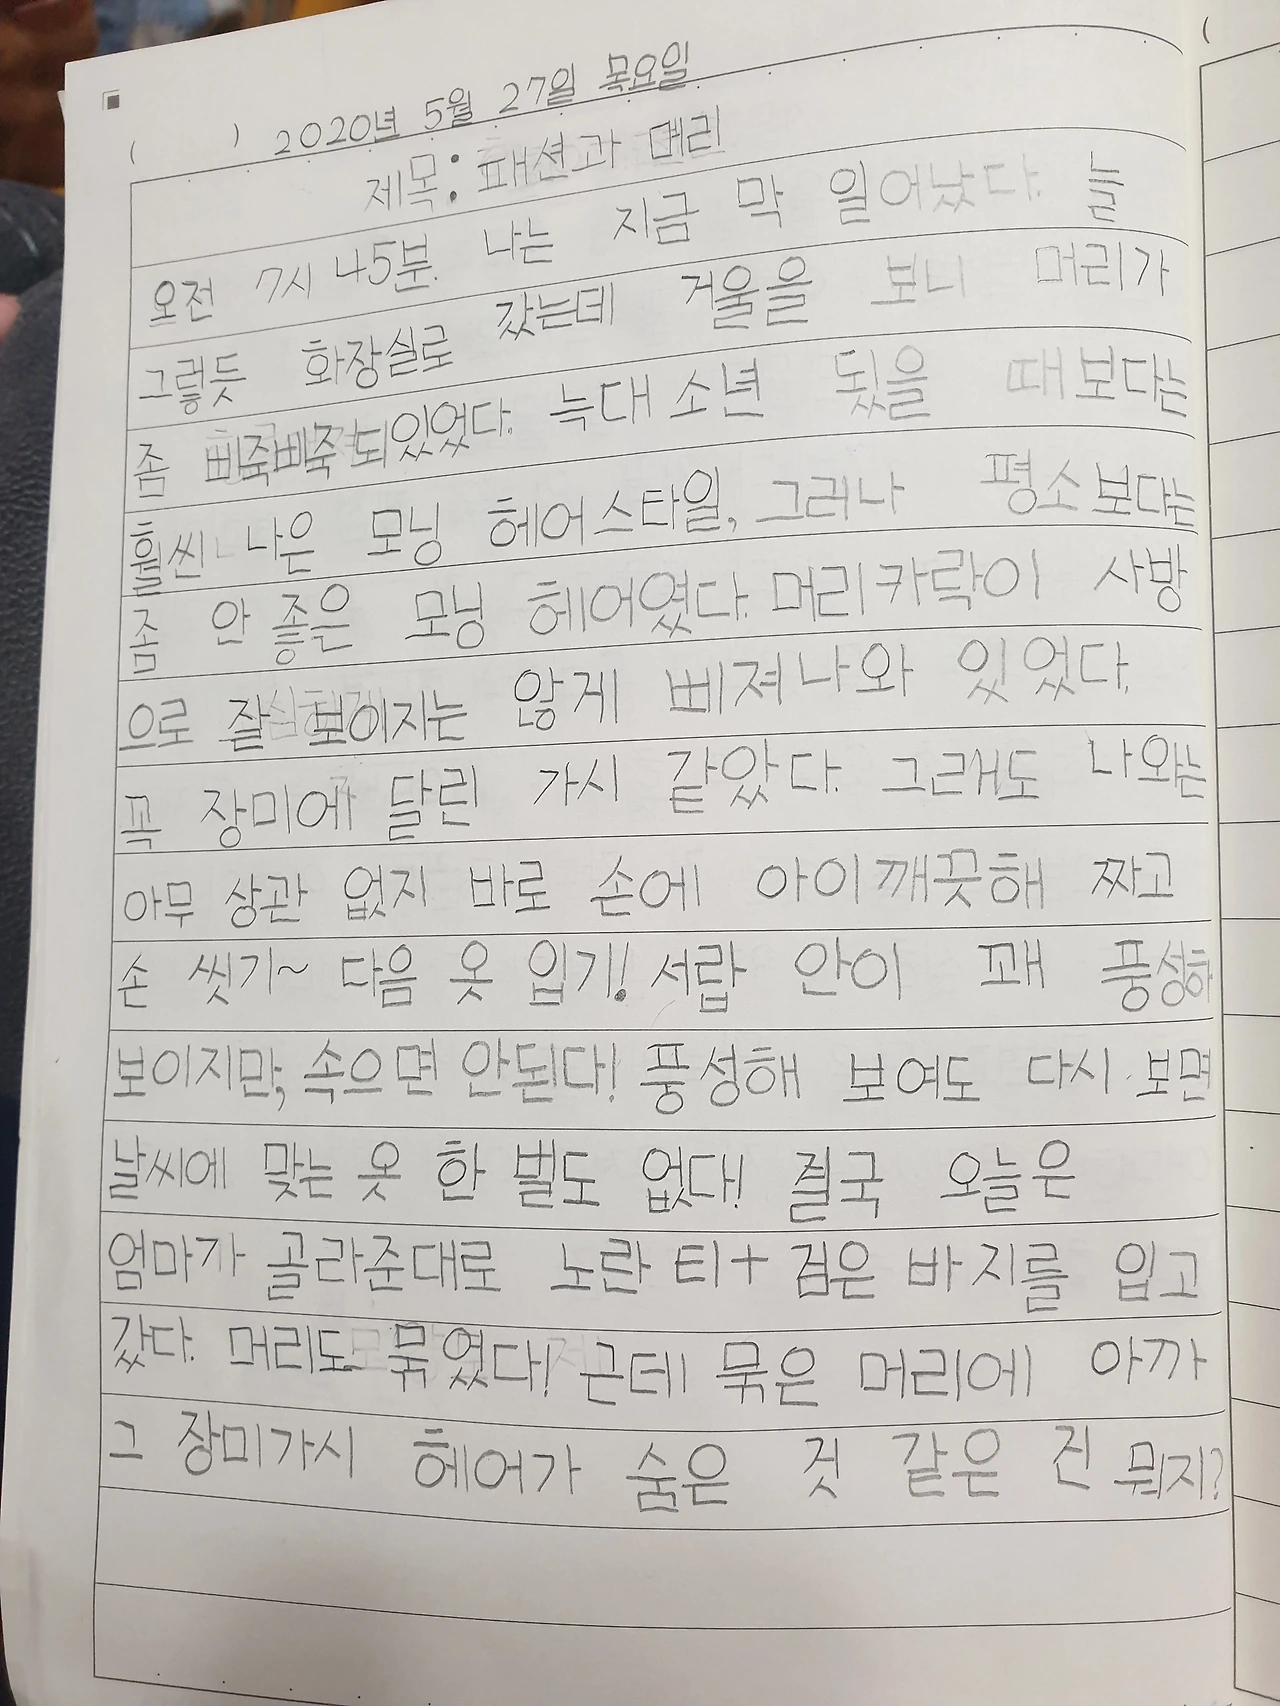 ( ) 2020년 5월 27일 목요일
제목: 패션과 머리
오전 7시 45분. 나는 지금 막 일어났다. 늘
그렇듯 화장실로 갔는데 거울을 보니 머리가
좀 삐죽삐죽 되있었다. 늑대 소년 됬을 때보다는
훨씬 나은 모닝 헤어스타일, 그러나 평소보다는
좀 안 좋은 모닝 헤어였다. 머리카락이 사방
으로 잘 보이지는 않게 삐져나와 있었다.
꼭 장미에 달린 가시 같았다. 그래도 나와는
아무 상관 없지 바로 손에 아이깨끗해 짜고
손 씻기~ 다음 옷 입기! 서랍 안이 꽤 풍성하
보이지만, 속으면 안된다! 풍성해 보여도 다시 보면
날씨에 맞는 옷 한 벌도 없다! 결국 오늘은
엄마가 골라준대로 노란 티+ 검은 바지를 입고
갔다. 머리도 묶였다! 근데 묶은 머리에 아까
그 장미가시 헤어가 숨은 것 같은 건 뭐지?